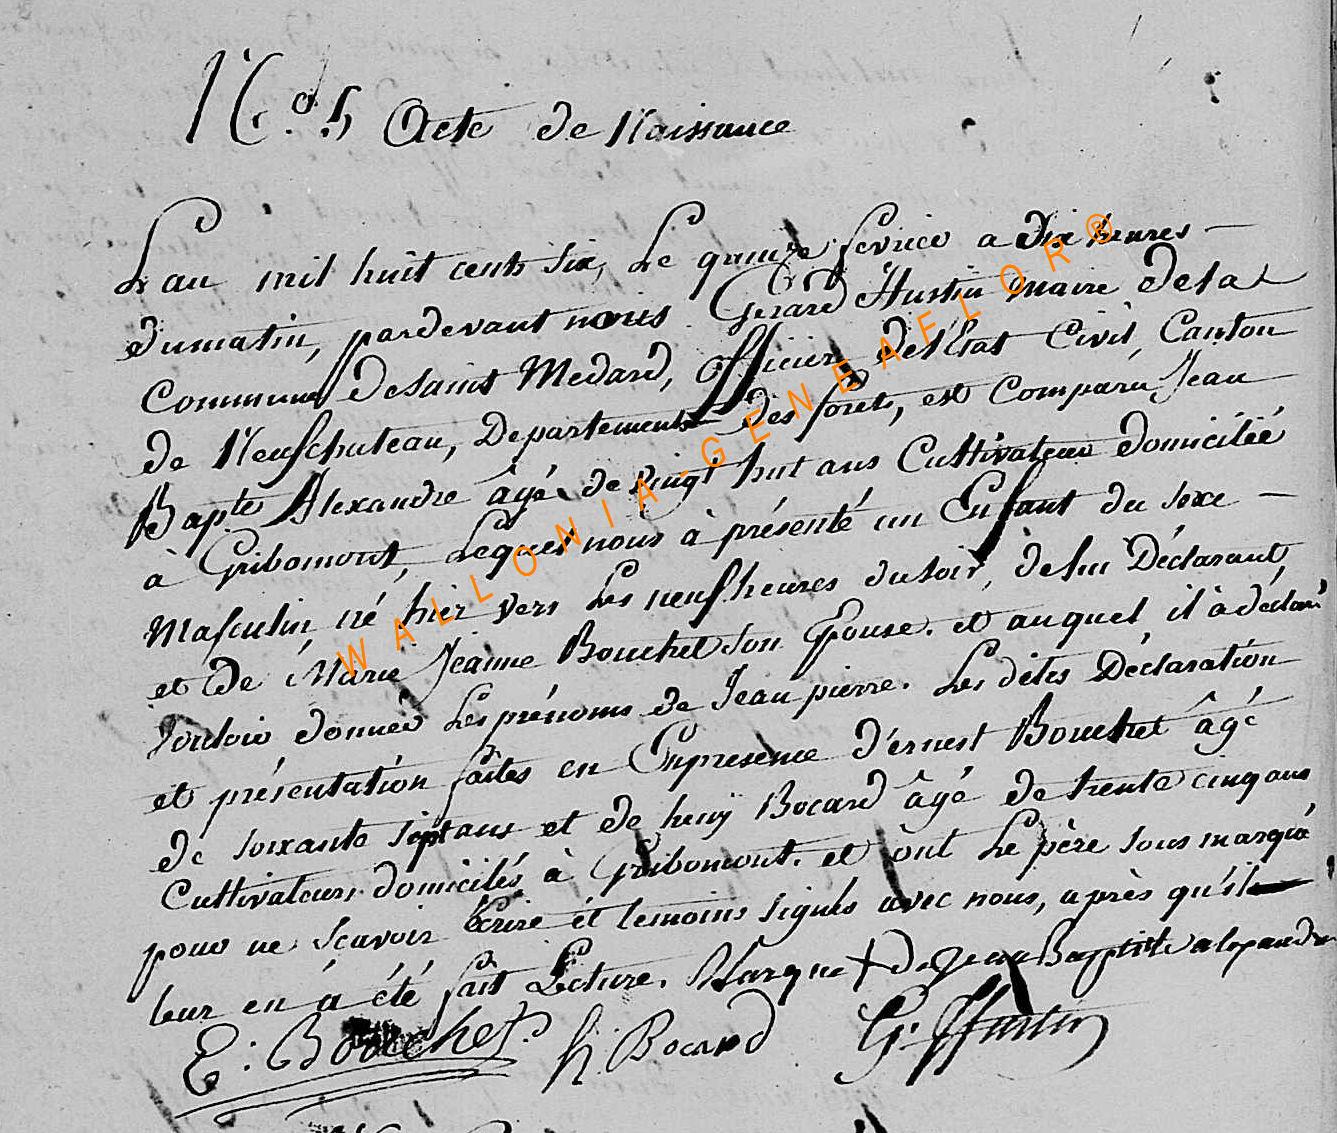 N.o 5 Acte de Naissance
L'an mil huit cents six, Le quinze fevrier a dix heures —
dumatin, pardevant nous Gerard Hustin maire dela
Commune deSaint Medard, officier del'Etat Civil, Canton
de Neufchateau, Departements des forets, est Comparu, Jean
Bapte Alexandre âgé de vingt huit ans Cultivateur domicilié
à Gribomont, Lequel nous à présenté un Enfant du sexe —
Masculin, né hier vers Les neuf heures dusoir, de lui Déclarant,
et de Marie Jeanne Bouchet son Epouse. et auquel il à déclaré
vouloir donner Les prénoms de Jean pierre. Les dites Déclaration
et présentation faites en Enpresence d'ernest Bouchet âgé
de soixante sept ans et de henry Bocard âgé de trente cinq ans
Cultivateurs domicilés à Gribomont. et ont Le père sous marqué
pour ne Scavoir Ecrire et temoins signés avec nous, après qu'il
leur en à été fait Lecture. Marque + de Jean Baptiste alexandre
E: Bouchet. h: Bocard G: Hustin
WALLONIA-GENEAFLOR®